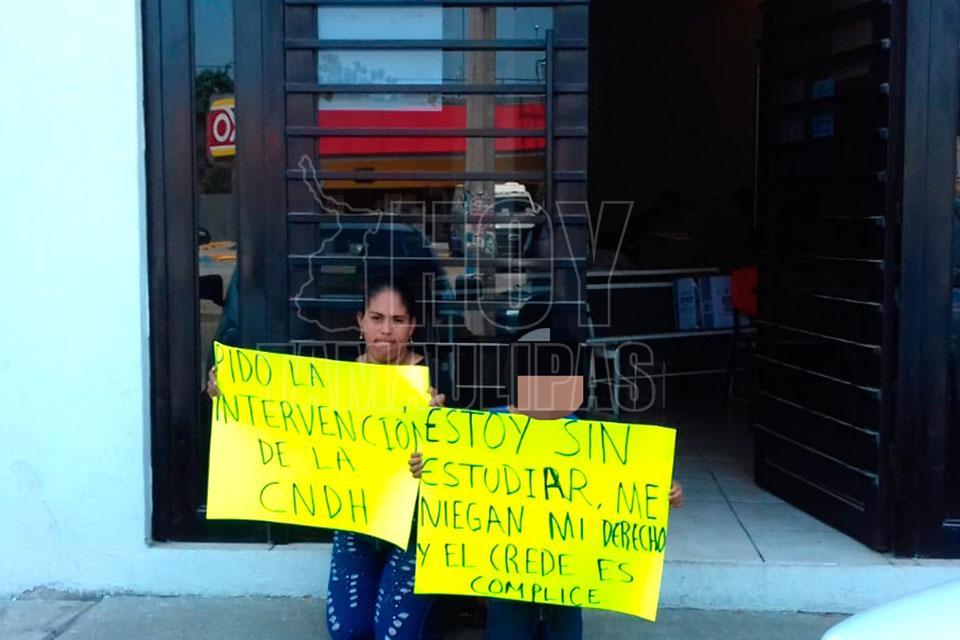 OX
HOY
TAMAULIPAS
PIDO LA
INTERVENCIÓN
DE LA
CNDH
ESTOY SIN
ESTUDIAR, ME
NIEGAN MI DERECHO
Y EL CREDE ES
COMPLICE